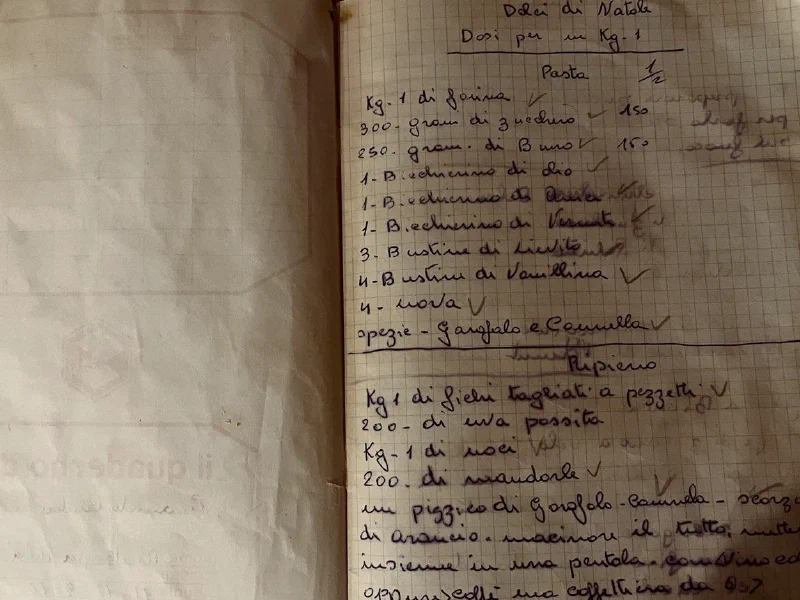 Dolci di Natale
Dosi per un Kg-1
Pasta 1/2
Kg-1 di farina
300- gram di zucchero 150
250. gram. di Burro 150
1-Bicchierino di olio
1-Bicchierino di
1-Bicchierino di Vermut
3. Bustine di Lievito
4-Bustine di Vanillina
4- uova
spezie - Garofalo e Cannella
Ripieno
Kg 1 di fichi tagliati a pezzetti
200- di uva passita
Kg-1 di noci
200. di mandorle
un pizzico di Garofalo-Cannella- scorza
di arancio. macinare il tutto, mette
insieme in una pentola. con vino co
caffè una caffettiera da
il quaderno d